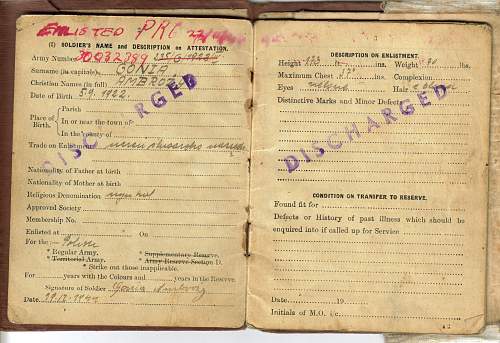 ENLISTED PRC
(I) SOLDIER'S NAME and DESCRIPTION on ATTESTATION.
Army Number 30032789
Surname (in capitals) GONIA
Christian Names (in full) AMBROŻY
Date of Birth 5.9.1922.
Place of Birth.
Parish
In or near the town of
In the county of
Trade on Enlistment
Nationality of Father at birth
Nationality of Mother at birth
Religious Denomination
Approved Society
Membership No.
Enlisted at On
For the :—
* Regular Army. * Supplementary Reserve.
* Territorial Army. * Army Reserve Section D.
* Strike out those inapplicable.
For years with the Colours and years in the Reserve
Signature of Soldier Gonia
Date
DISCHARGED
3
DESCRIPTION ON ENLISTMENT.
Height ins. Weight lbs.
Maximum Chest ins. Complexion
Eyes Hair
Distinctive Marks and Minor Defects
DISCHARGED
CONDITION ON TRANSFER TO RESERVE.
Found fit for
Defects or History of past illness which should be
enquired into if called up for Service
Date 19
Initials of M.O. i/c.